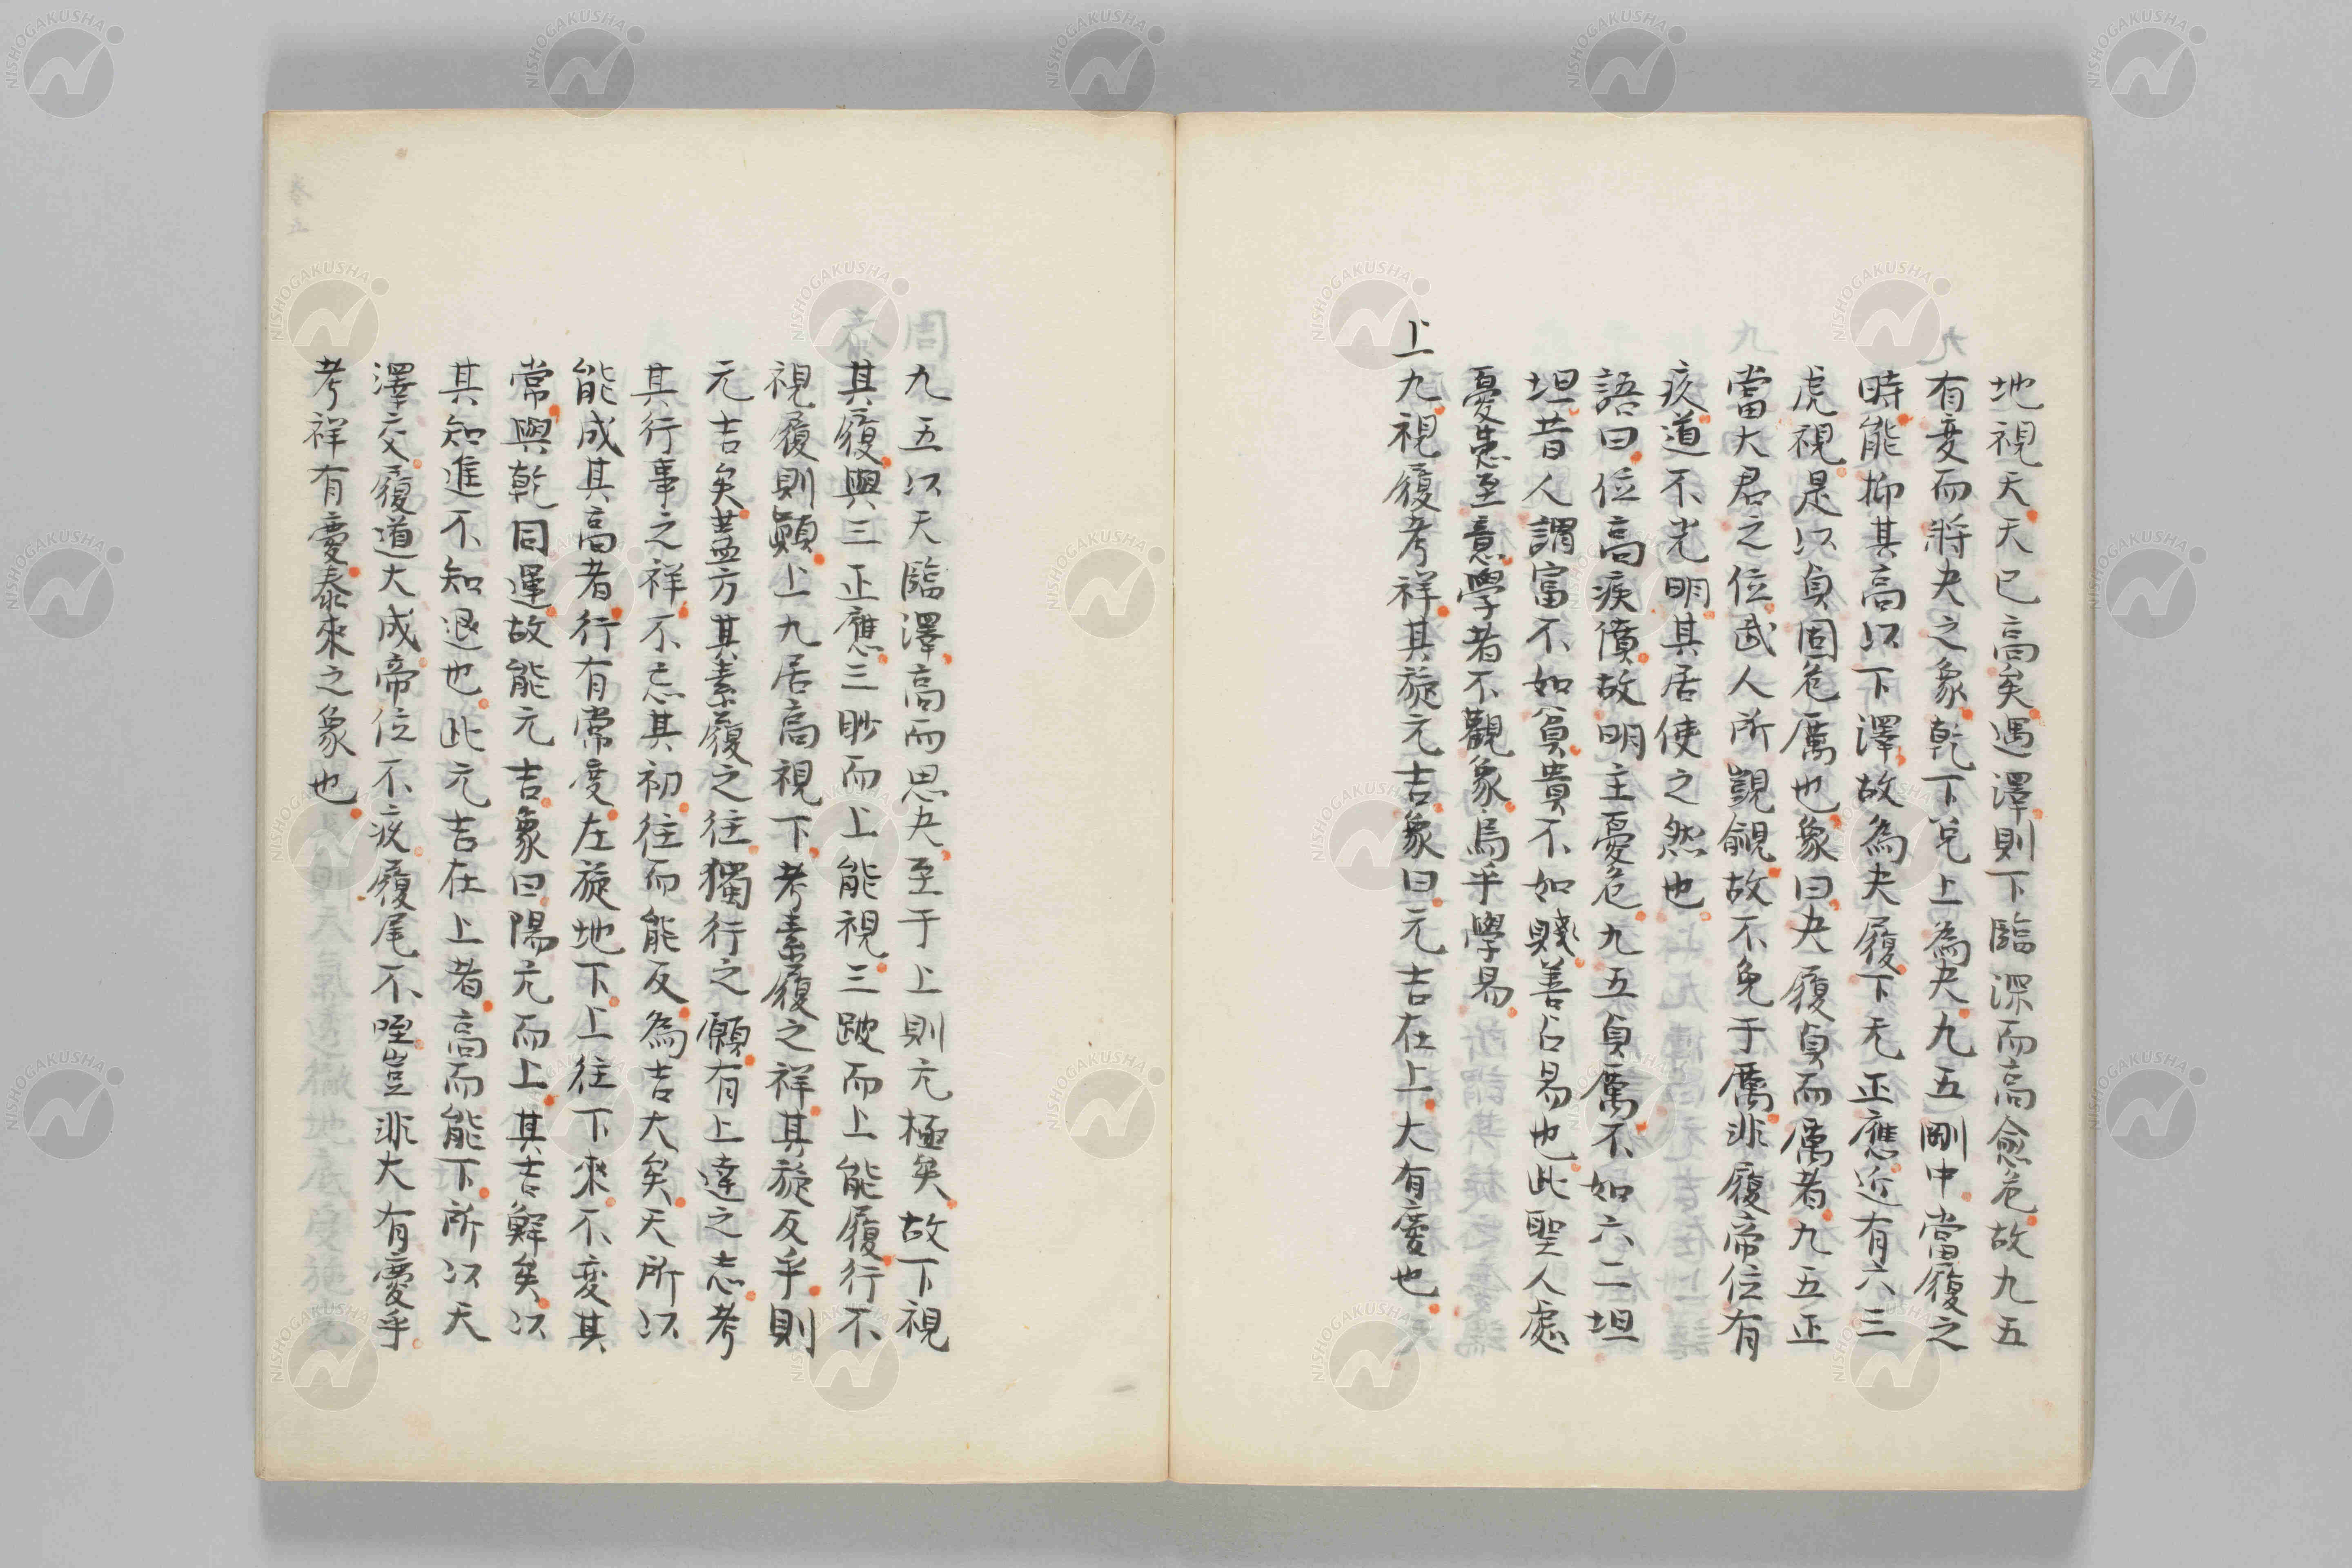 地視天天已高矣遇澤則下臨深而高愈危故九五
有変而將夬之象乾下兌上為夬九五剛中當履之
時能抑其高以下澤故為夬履下无正應近有六三
虎視是以貞固危厲也象曰夬履貞而厲者九五正
當大君之位武人所覬覦故不免于厲非履帝位有
疚道不光明其居使之然也
語曰位高疾僨故明主憂危九五貞厲不如六二坦
坦昔人謂富不如貧貴不如賤善占易也此聖人處
憂患至意學者不觀象烏乎學易
上九視履考祥其旋元吉象曰元吉在上大有慶也
九五以天臨澤高而思夬至于上則亢極矣故下視
其履與三正應三眇而上能視三跛而上能履行不
視履則顛上九居高視下考素履之祥其旋反乎則
元吉矣蓋方其素履之往獨行之願有上達之志考
其行事之祥不忘其初往而能反為吉大矣天所以
能成其高者行有常度左旋地下上往下來不変其
常與乾同運故能元吉象曰陽亢而上其吉鮮矣以
其知進不知退也此元吉在上者高而能下所以天
澤交履道大成帝位不疚履尾不咥豈非大有慶乎
考祥有慶泰來之象也